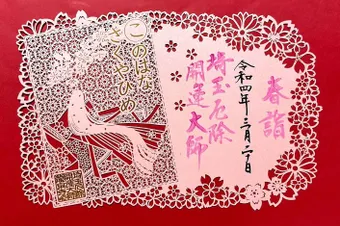 春詣
令和四年三月二十日
埼玉厄除
開運大師
このはな
さくやひめ